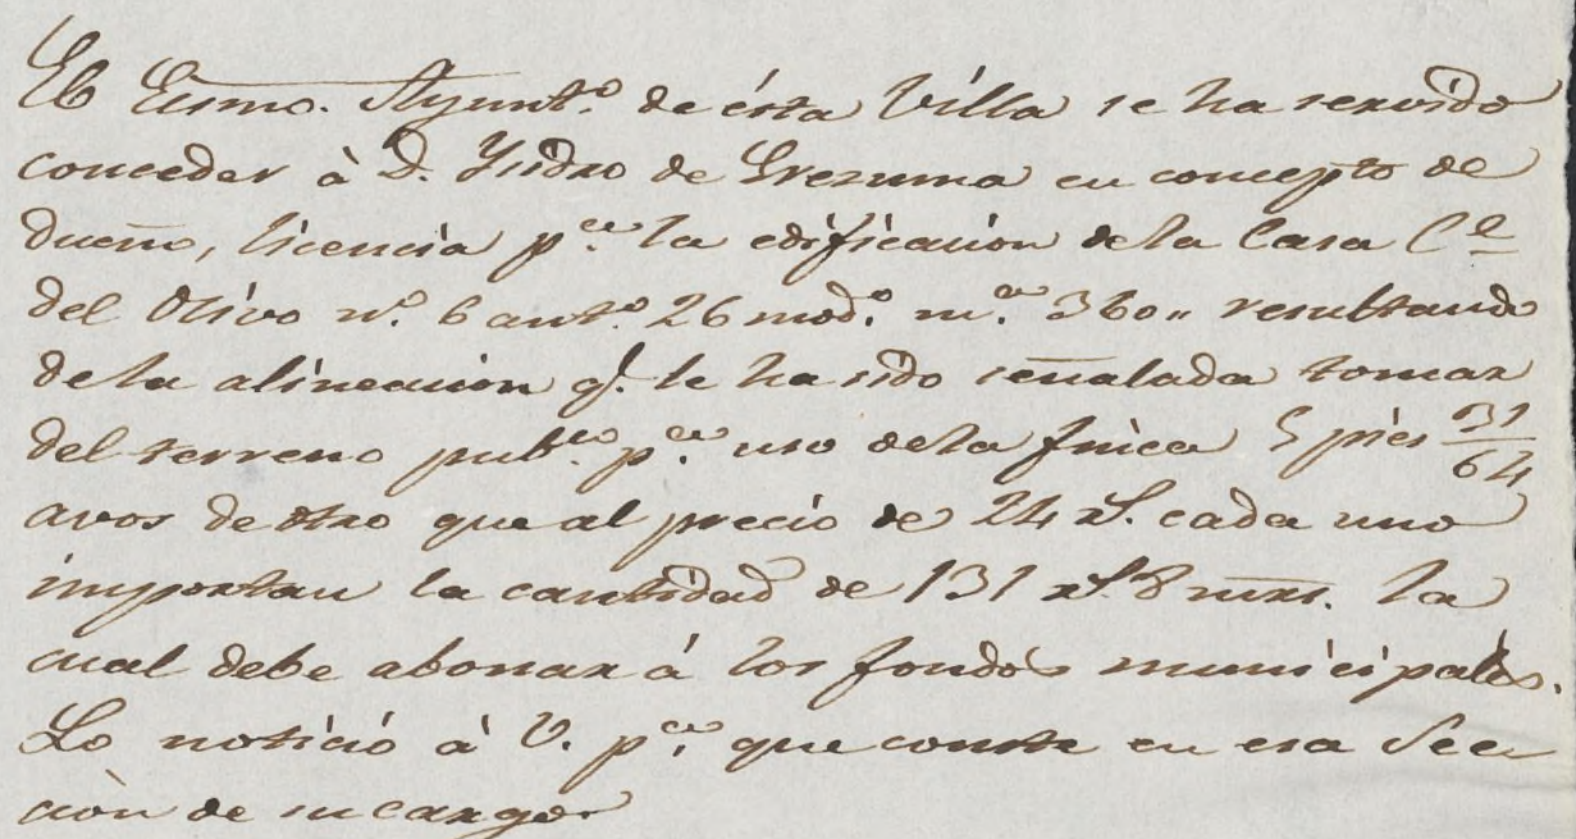 El Exmo. Ayuntº de ésta Villa se ha servido
conceder à D. Ysidro de Urezuma en concepto de
dueño, licencia pª la edificacion de la Casa Cª
del Olivo nº 6 antº 26 modº mª 360,, resultando
de la alineacion q.e le ha sido señalada tomar
del terreno pubco pª uso de la finca 5 pies 31/64
avos de otro que al precio de 24 rs. cada uno
importan la cantidad de 131 rs. 8 mrs. la
cual debe abonar á los fondos municipales.
Lo notició à V. pª que conste en esa Sec
ciòn de su cargo